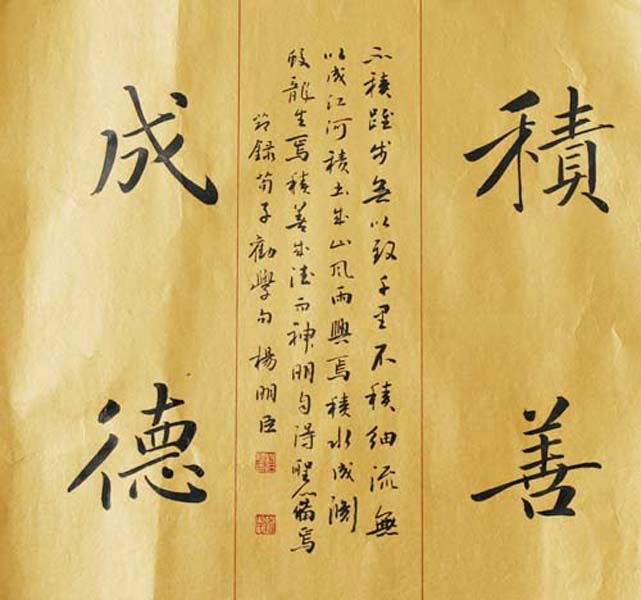 積善
不積跬步無以致千里不積細流無
以成江河積土成山風雨興焉積水成淵
蛟龍生焉積善成德而神明自得聖心備焉
節録荀子勸學句楊明臣
成德